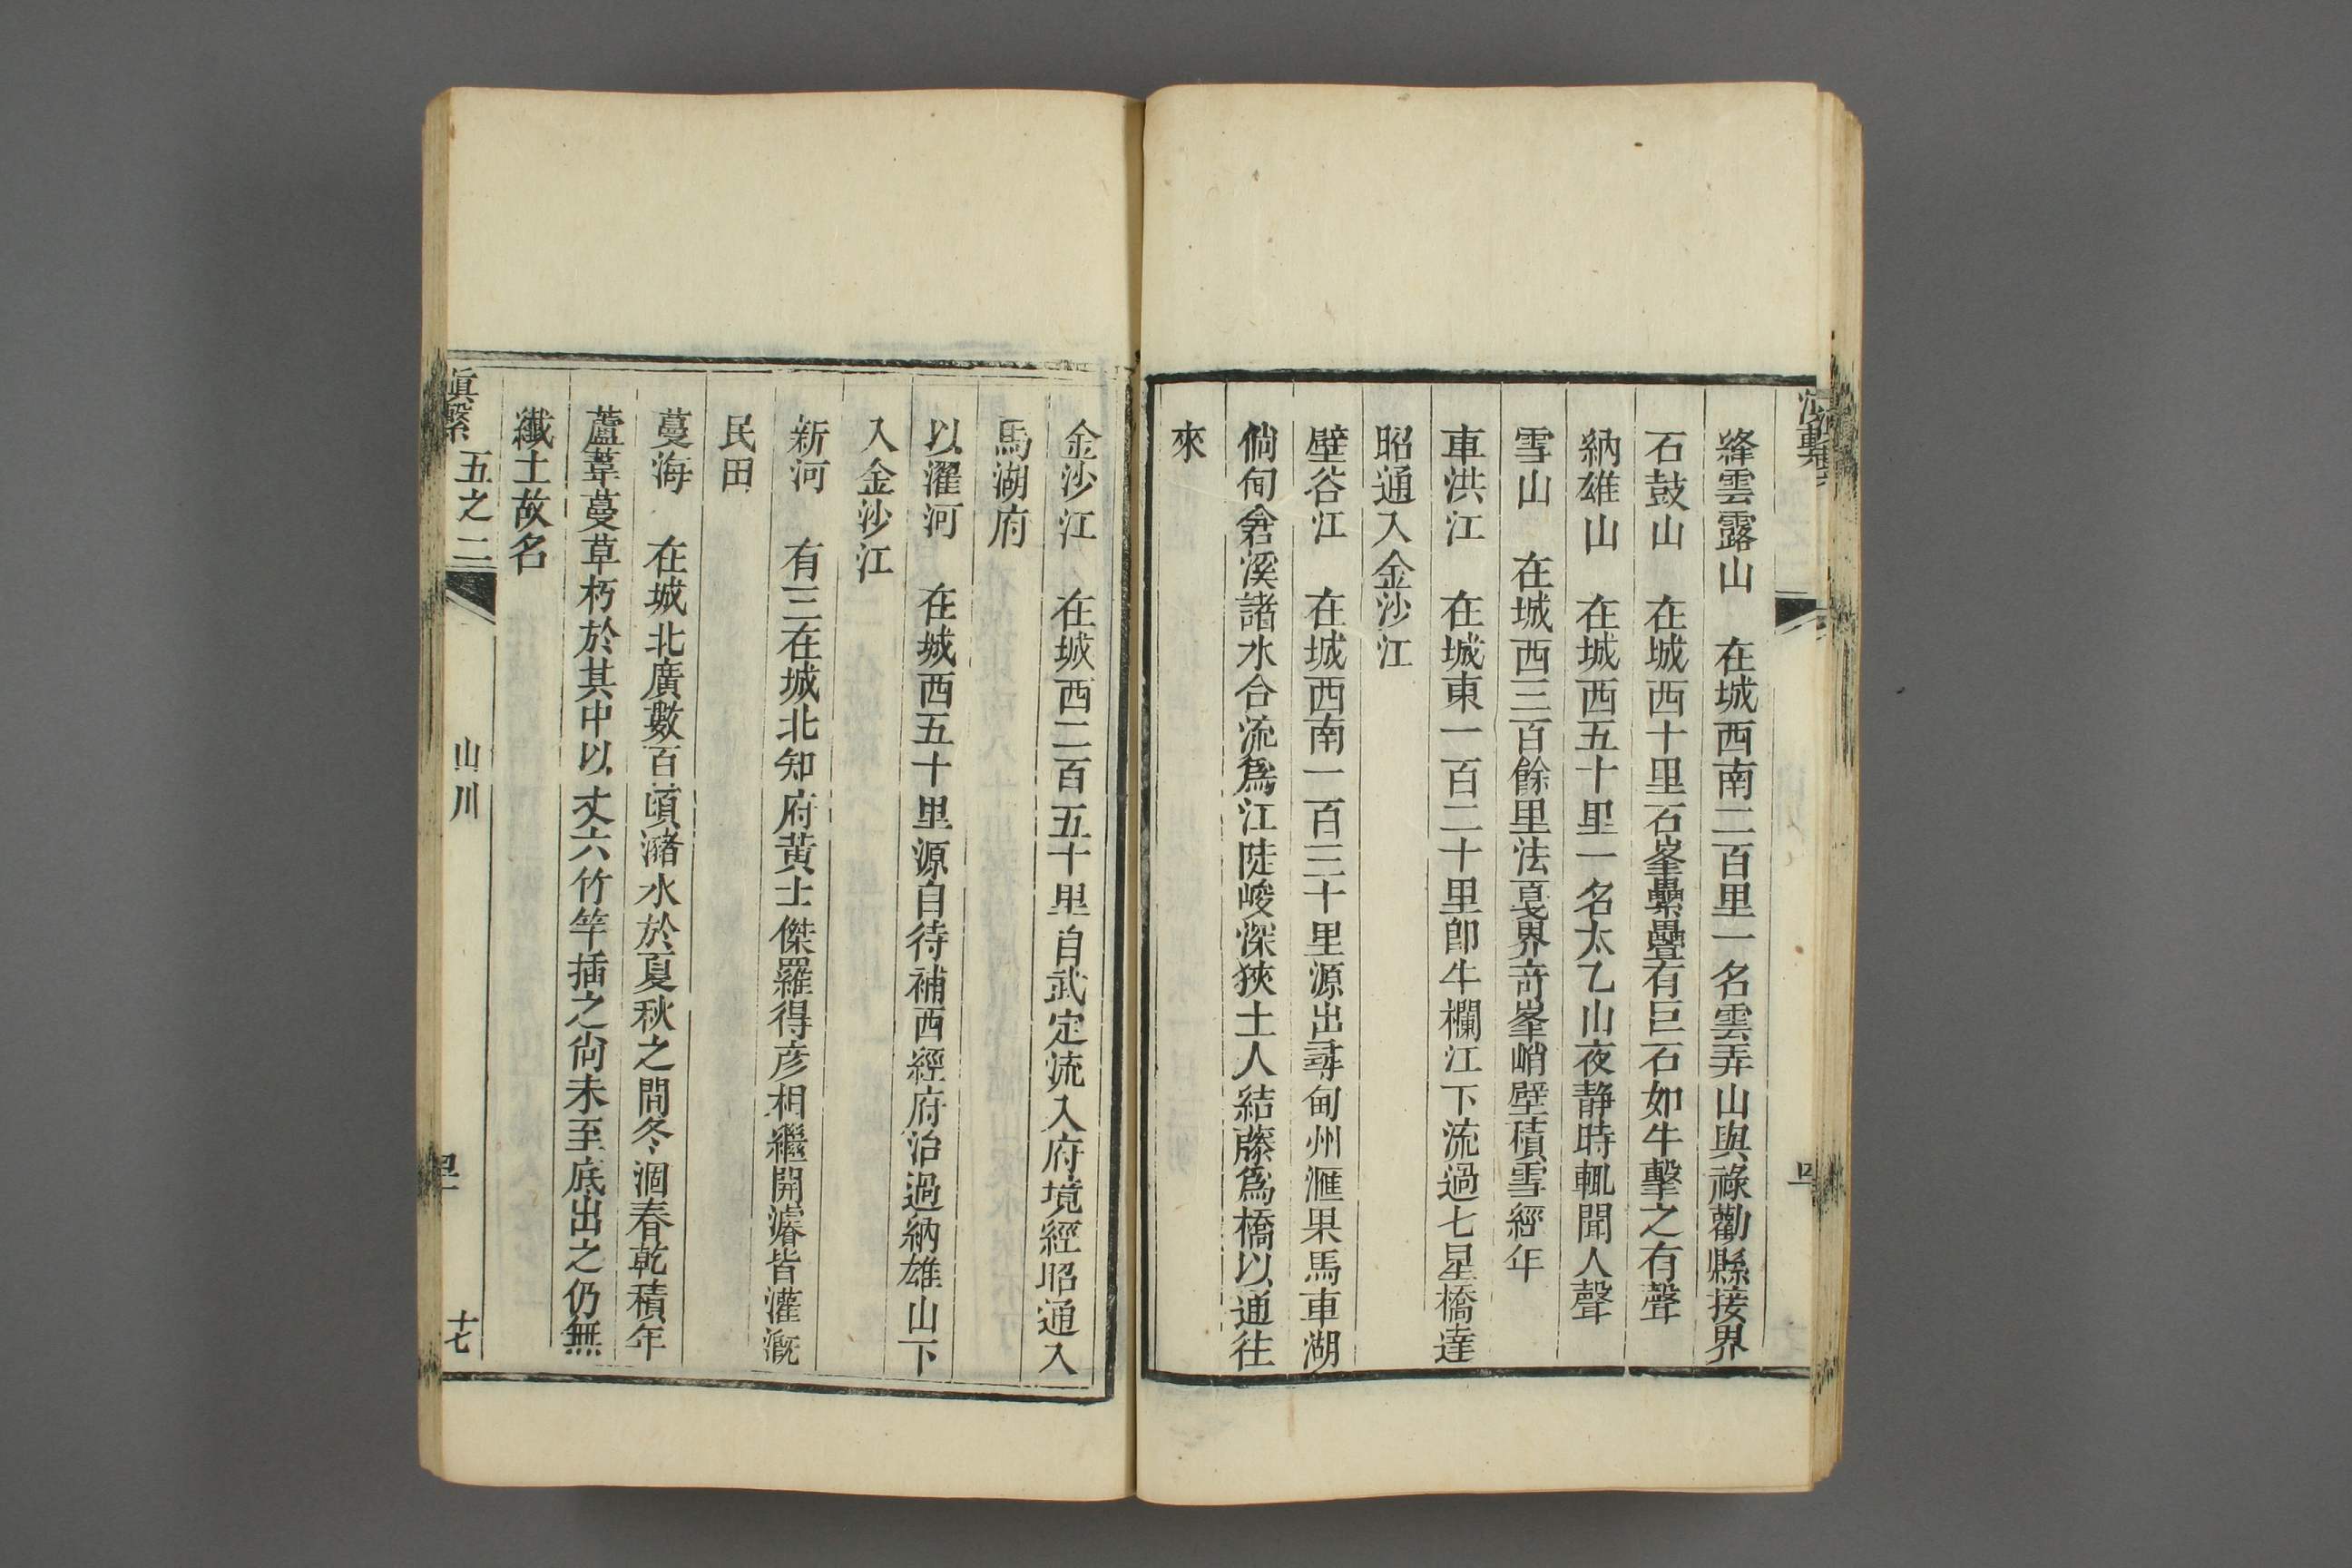 絳雲露山　在城西南二百里一名雲弄山與祿勸縣接界
石鼓山　在城西十里石峯纍疊有巨石如牛擊之有聲
納雄山　在城西五十里一名太乙山夜静時輒聞人聲
雪山　在城西三百餘里法戛界竒峯峭壁積雪經年
車洪江　在城東一百二十里卽牛欄江下流過七星橋達
昭通入金沙江
壁谷江　在城西南一百三十里源出尋甸州滙果馬車湖
倘甸龠溪諸水合流爲江陡峻深狹土人結藤爲橋以通往
來
金沙江　在城西二百五十里自武定流入府境經昭通入
馬湖府
以濯河　在城西五十里源自待補西經府治過納雄山下
入金沙江
新河　有三在城北知府黃士傑羅得彦相繼開濬皆灌漑
民田
蔓海　在城北廣數百頃瀦水於夏秋之間冬涸春乾積年
蘆葦蔓草朽於其中以丈六竹竿插之尙未至底出之仍無
纖土故名
滇繫　五之二　山川　十七